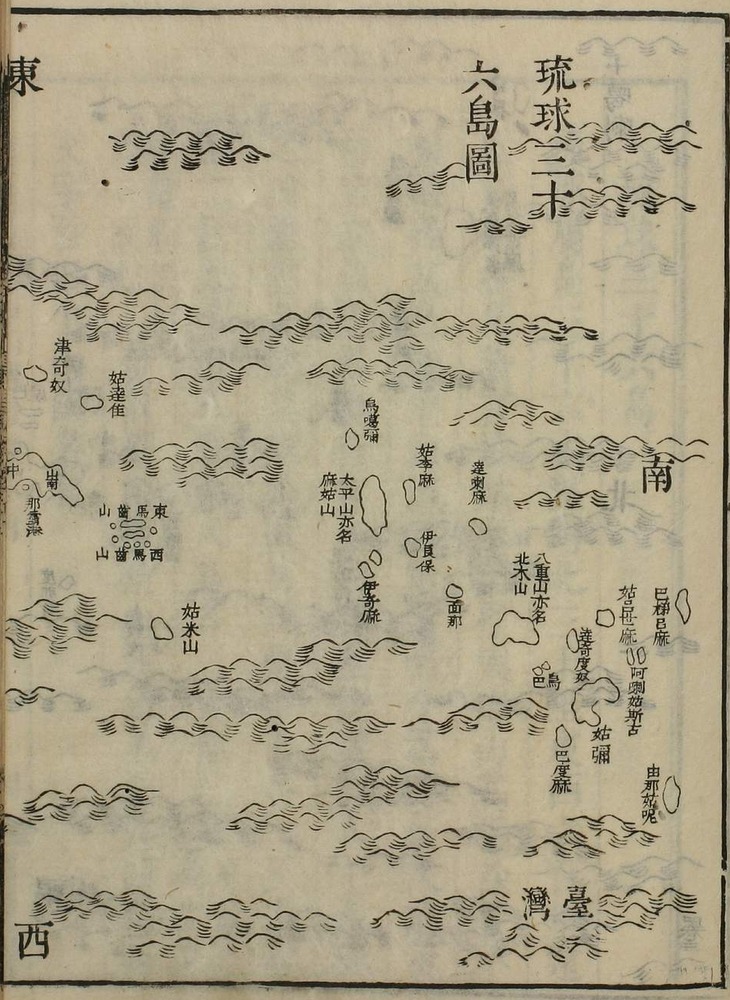 琉球三十
六島圖
東
南
西
臺灣
巴梯呂麻
姑呂世麻
阿喇姑斯古
由那姑呢
達奇度奴
姑彌
巴度麻
烏巴
八重山亦名
北木山
達喇麻
面那
姑李麻
伊良保
烏噶彌
太平山亦名
麻姑山
伊奇麻
姑米山
東馬齒山
西馬齒山
姑達佳
津奇奴
山南
中
那霸港